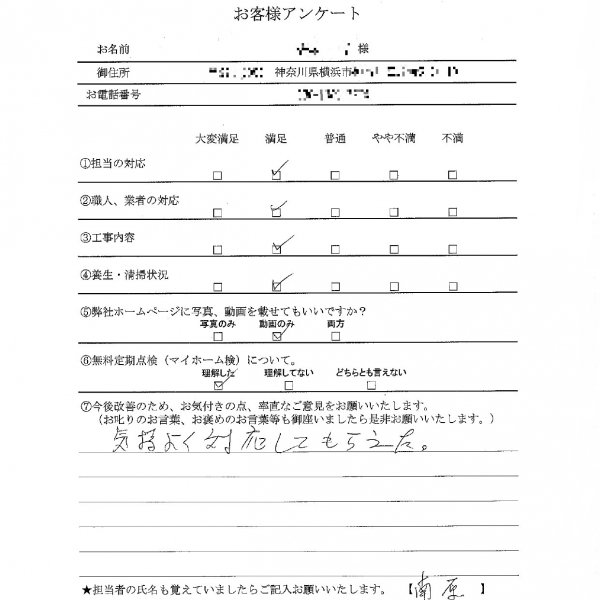 お客様アンケート
お名前 様
御住所 神奈川県横浜市
お電話番号
大変満足 満足 普通 やや不満 不満
①担当の対応
②職人、業者の対応
③工事内容
④養生・清掃状況
⑤弊社ホームページに写真、動画を載せてもいいですか？
写真のみ 動画のみ 両方
⑥無料定期点検（マイホーム検）について。
理解した 理解してない どちらとも言えない
⑦今後改善のため、お気付きの点、率直なご意見をお願いいたします。
（お叱りのお言葉、お褒めのお言葉等も御座いましたら是非お願いいたします。）
気持よく対応してもらえた。
★担当者の氏名も覚えていましたらご記入お願いいたします。 【南原 】